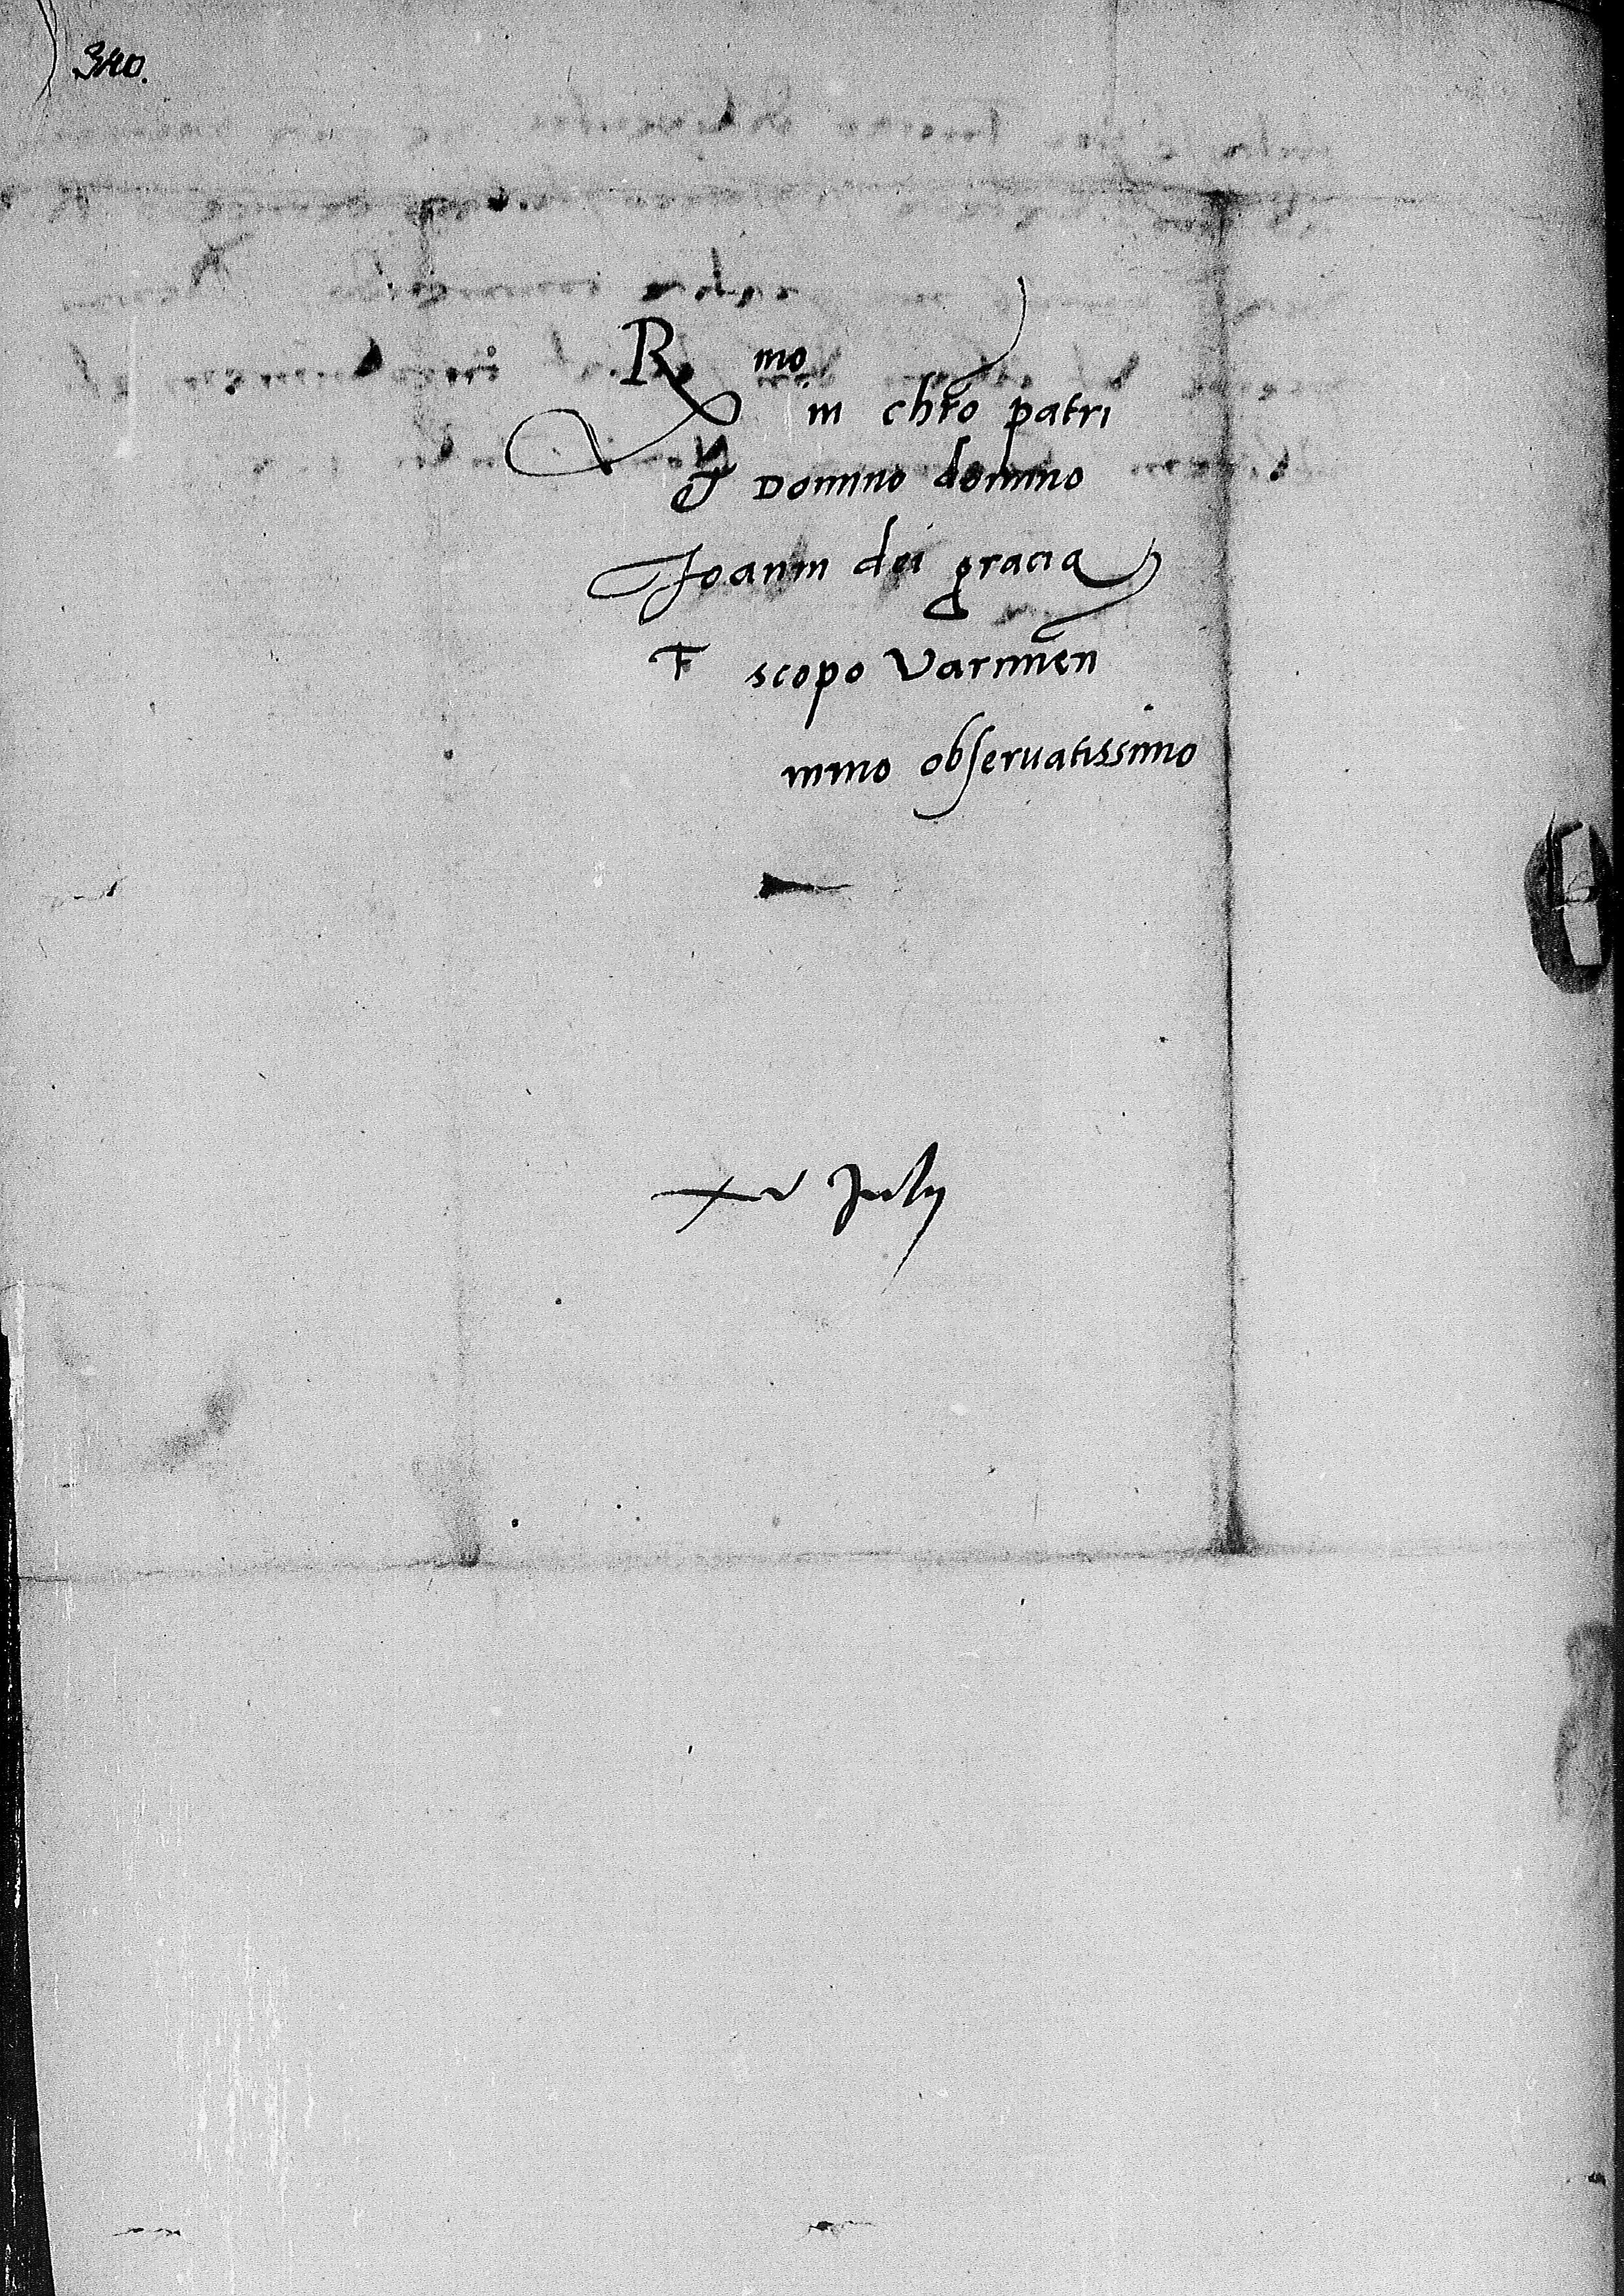 340.
R mo
in chro patri
et Domino domino
Joanni dei gracia
E scopo Varmien
mino obseruatissimo
xv July